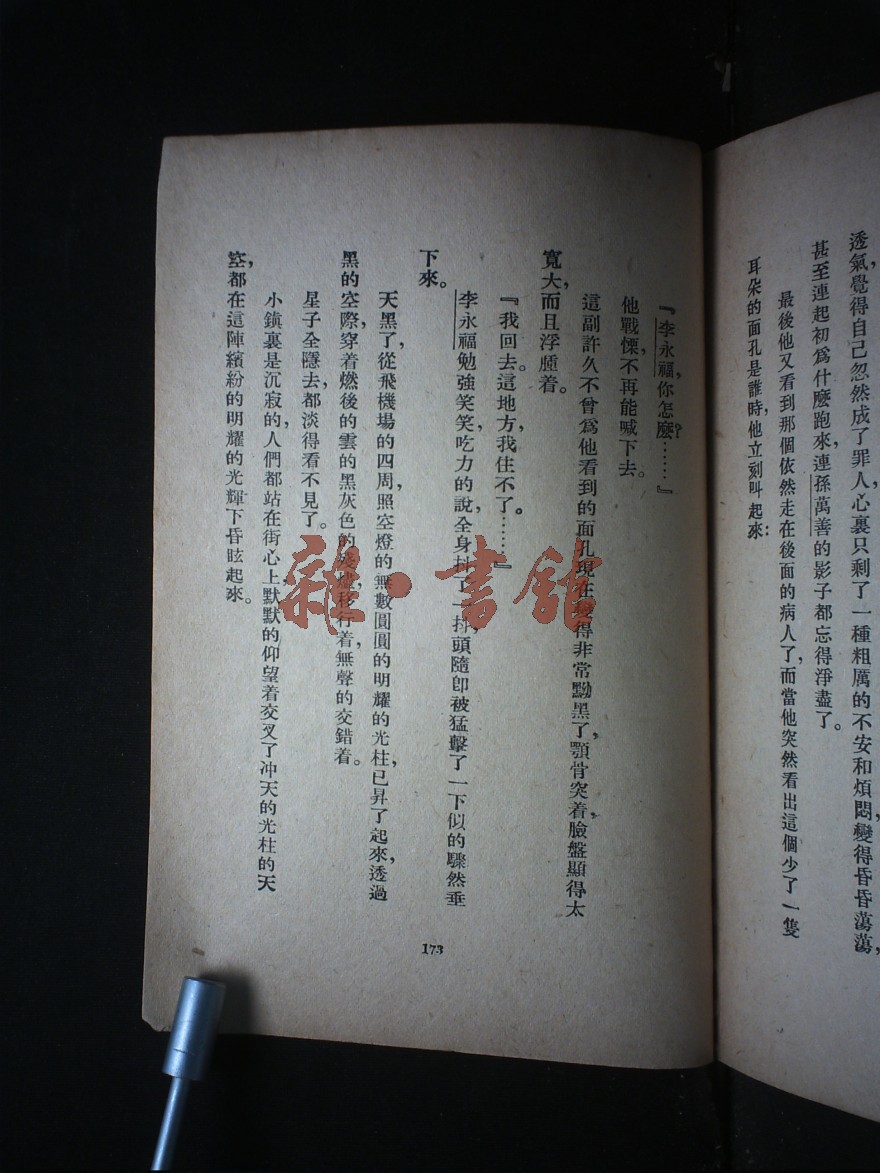 透氣，覺得自己忽然成了罪人，心裏只剩了一種粗厲的不安和煩悶，變得昏昏蕩蕩，
甚至連起初爲什麽跑來，連孫萬善的影子都忘得淨盡了。
最後他又看到那個依然走在後面的病人了，而當他突然看出這個少了一隻
耳朵的面孔是誰時，他立刻叫起來：
『李永福，你怎麼？……』
他戰慄，不再能喊下去。
這副許久不曾爲他看到的面孔，現在變得非常黝黑了，顎骨突着，臉盤顯得太
寬大，而且浮腫着。
『我回去。這地方，我住不了。……』
李永福勉強笑笑，吃力的說，全身抖了一抖，頭隨卽被猛擊了一下似的驟然垂
下來。
天黑了，從飛機場的四周，照空燈的無數圓圓的明耀的光柱，已昇了起來，透過
黑的空際，穿着燃後的雲的黑灰色的殘燼，移行着，無聲的交錯着。
星子全隱去，都淡得看不見了。
小鎮裏是沉寂的，人們都站在街心上，默默的仰望着交叉了冲天的光柱的天
空，都在這陣繽紛的明耀的光輝下昏眩起來。
173
雜·書館